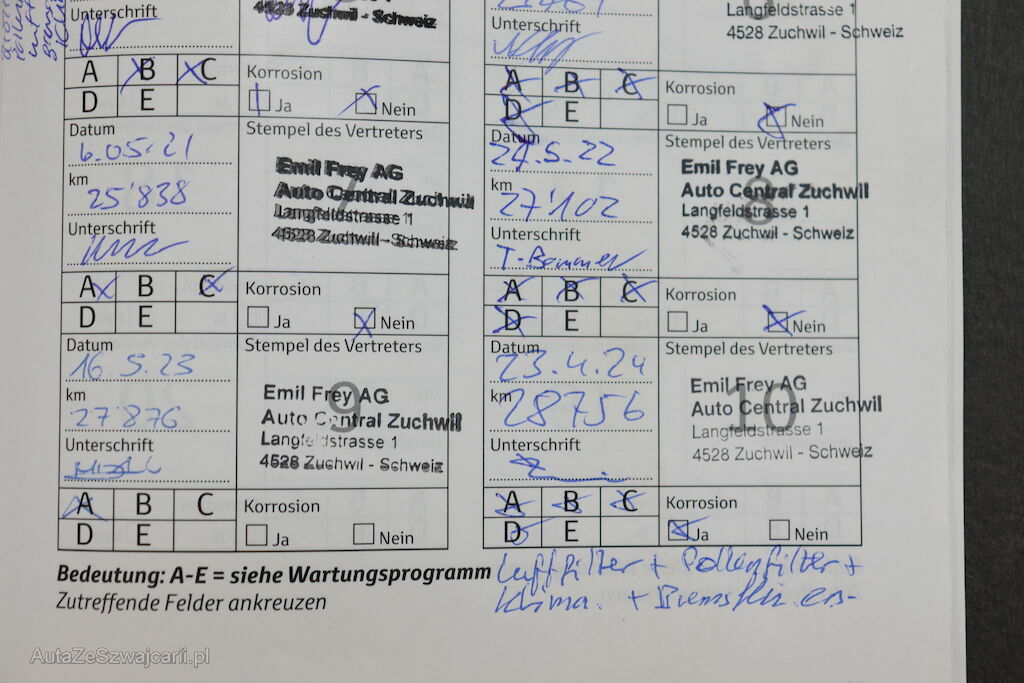 Unterschrift
4528 Zuchwil - Schweiz
A B C
D E
Korrosion
Ja Nein
Datum
6.05.21
km
25'838
Unterschrift
Stempel des Vertreters
7
Emil Frey AG
Auto Central Zuchwil
Langfeldstrasse 1
4528 Zuchwil - Schweiz
A B C
D E
Korrosion
Ja Nein
Datum
16.5.23
km
27'876
Unterschrift
Stempel des Vertreters
9
Emil Frey AG
Auto Central Zuchwil
Langfeldstrasse 1
4528 Zuchwil - Schweiz
A B C
D E
Korrosion
Ja Nein
Bedeutung: A-E = siehe Wartungsprogramm
Zutreffende Felder ankreuzen
Unterschrift
Langfeldstrasse 1
4528 Zuchwil - Schweiz
A B C
D E
Korrosion
Ja Nein
Datum
24.5.22
km
27'102
Unterschrift
Stempel des Vertreters
8
Emil Frey AG
Auto Central Zuchwil
Langfeldstrasse 1
4528 Zuchwil - Schweiz
A B C
D E
Korrosion
Ja Nein
Datum
23.4.24
km
28756
Unterschrift
Stempel des Vertreters
10
Emil Frey AG
Auto Central Zuchwil
Langfeldstrasse 1
4528 Zuchwil - Schweiz
A B C
D E
Korrosion
Ja Nein
Luftfilter + Pollenfilter +
Klima. +
AutaZeSzwajcarii.pl